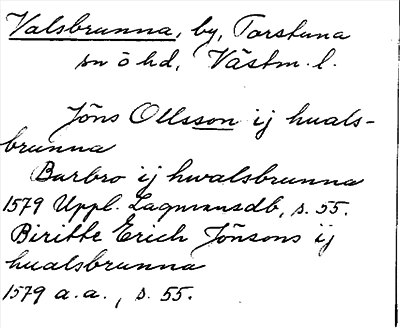 Valsbrunna, by, Torstuna
sn ö hd, Västm. l.
Jöns Ollsson ij huals-
brunna
Barbro ij hwalsbrunna
1579 Uppl. Lagmansdb, s. 55.
Biritte Erich Jönsons ij
hualsbrunna
1579 a.a., s. 55.